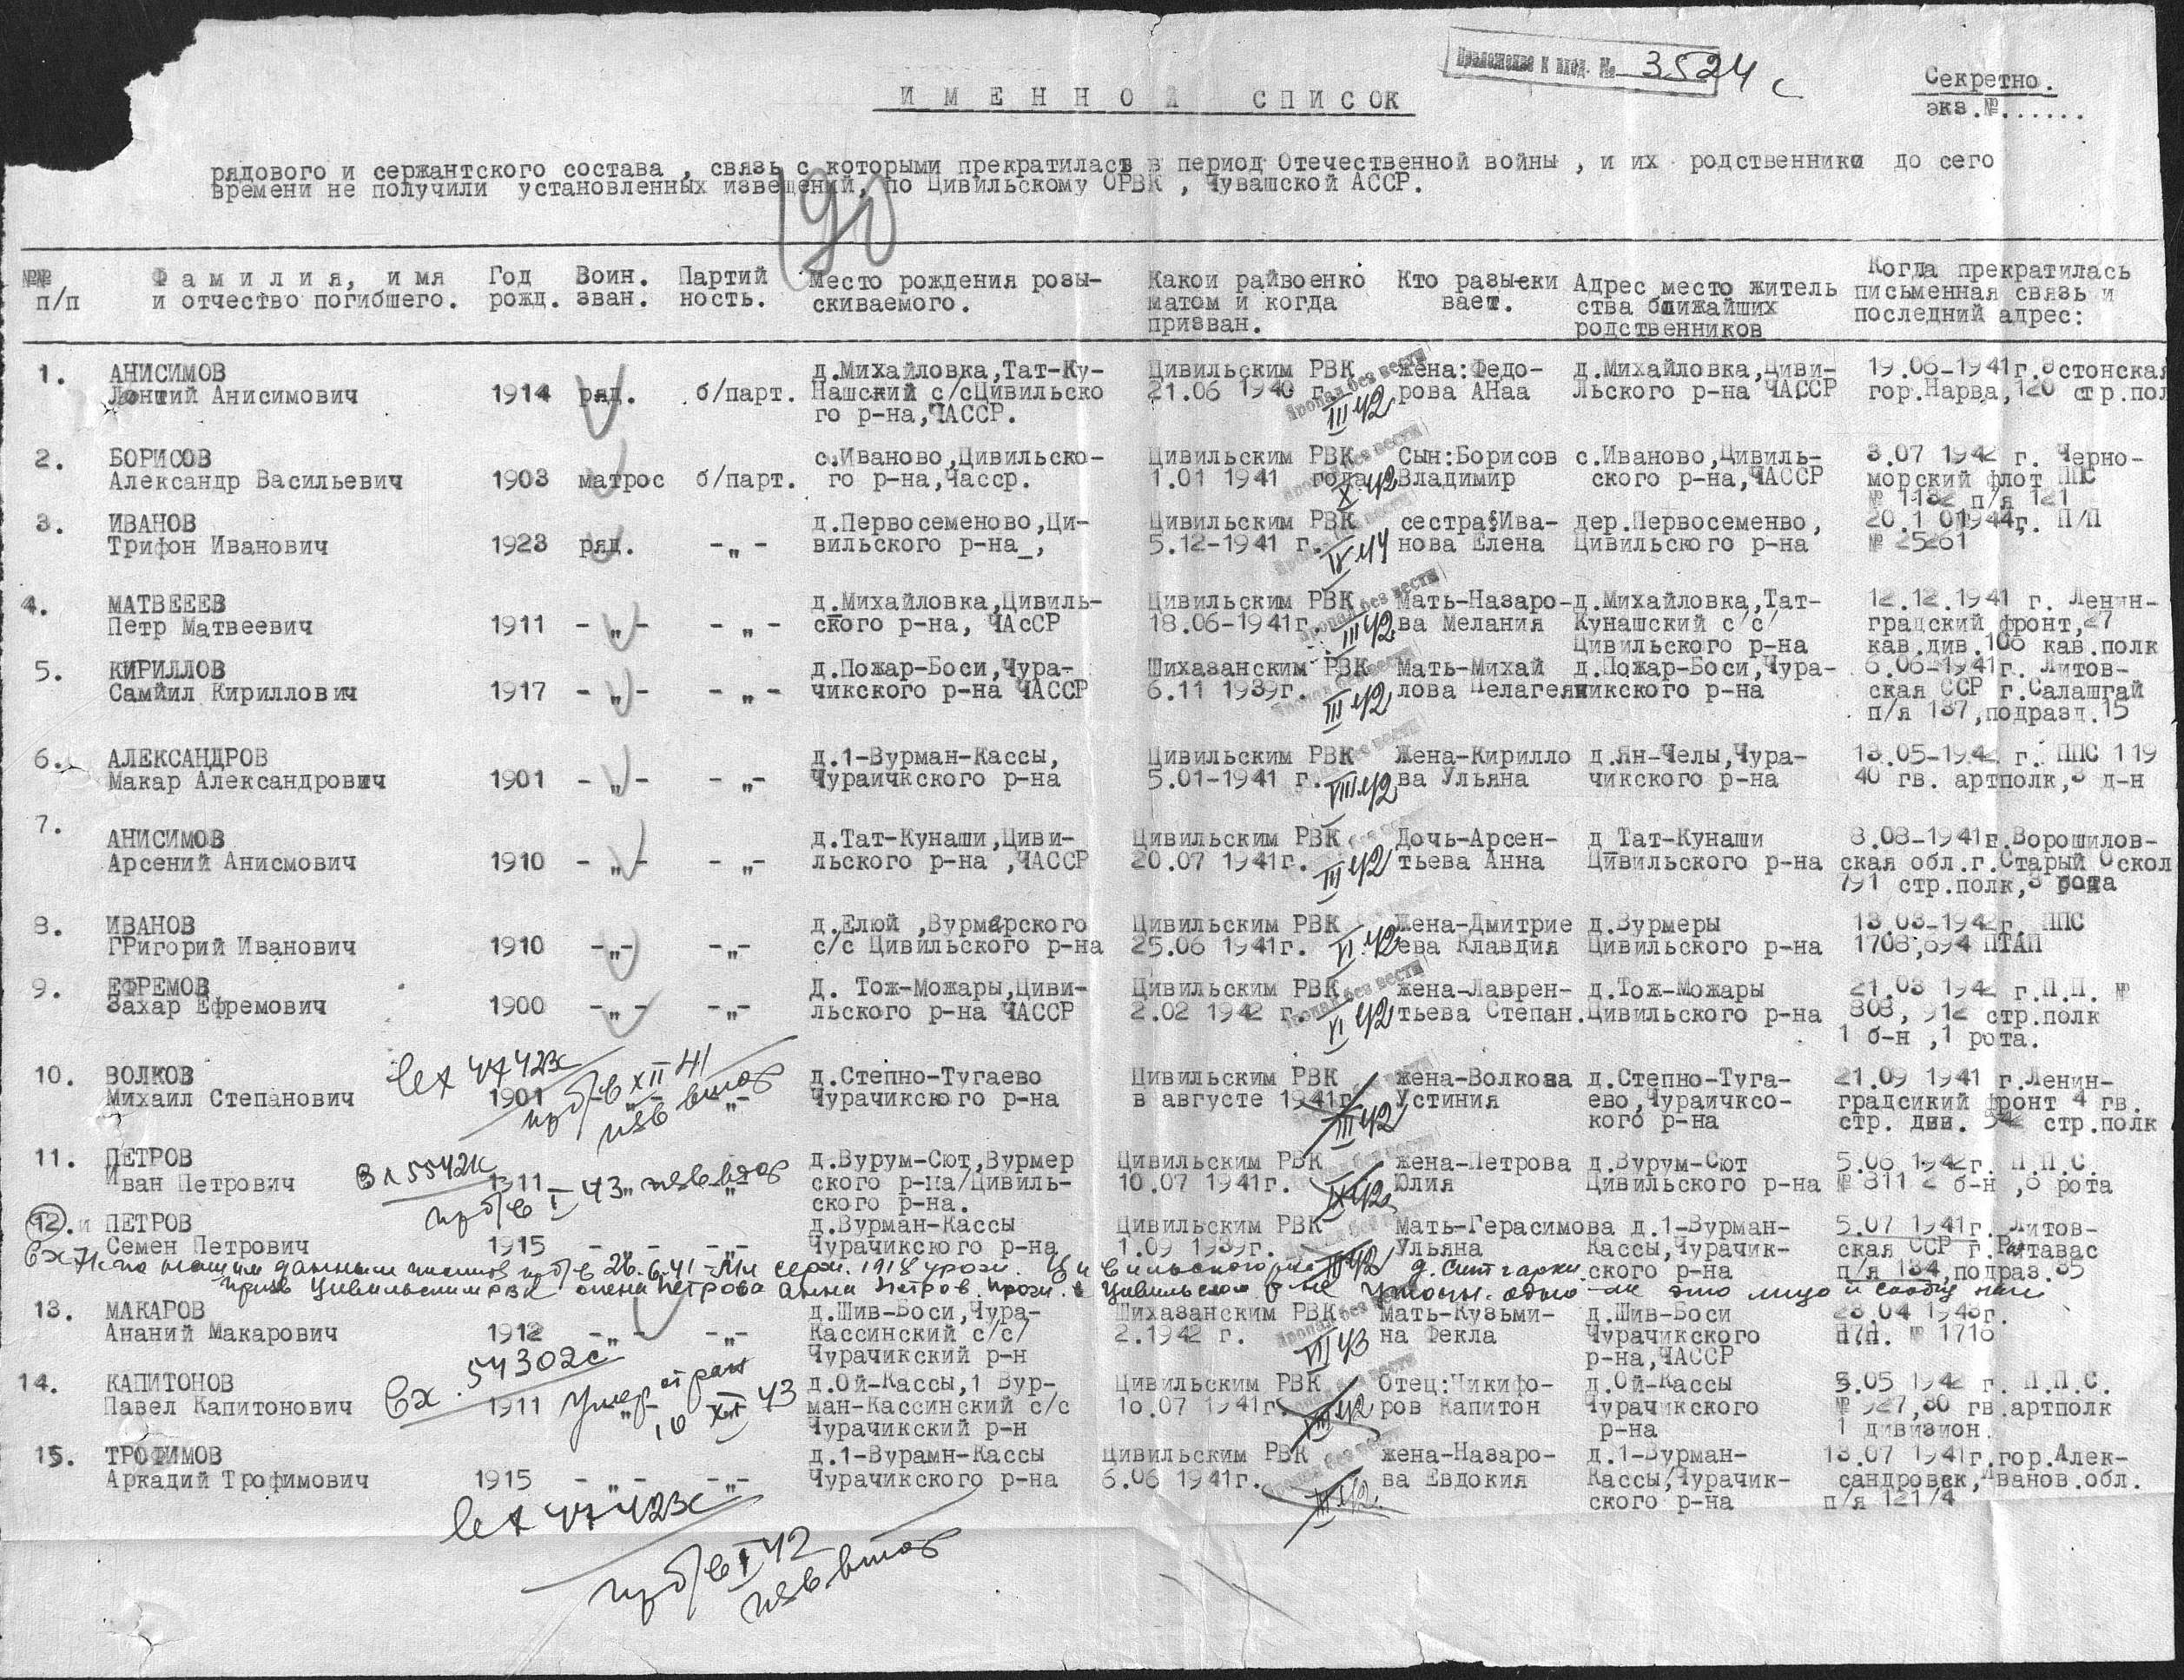 Приложение к вход. № 3524 с
Секретно.
экз.№......
ИМЕННОЙ СПИСОК
рядового и сержантского состава , связь с которыми прекратилась в период Отечественной войны , и их родственники до сего
времени не получили установленных извещений, по Цивильскому ОРВК , Чувашской АССР.
190
№№ п/п
Фамилия, имя и отчество погибшего.
Год рожд.
Воин. зван.
Партий ность.
Место рождения розы-скиваемого.
Какои райвоенко матом и когда призван.
Кто разыски вает.
Адрес место житель ства ближайших родственников
Когда прекратилась письменная связь и последний адрес:
1. АНИСИМОВ д.Михайловка,Тат-Ку- Цивильским РВК Пропал без вести жена:Федо- д.Михайловка,Циви- 19.06-1941г.Эстонская
Анисимович 1914 ряд. б/парт. Нашский с/сЦивильско 21.06 1940 г. III 42 рова АНаа Льского р-на ЧАССР гор.Нарва,120 стр.пол
го р-на,ЧАССР.
2. БОРИСОВ с.Иваново,Цивильско- Цивильским РВК Сын:Борисов с.Иваново,Цивиль- 3.07 1942 г. Черно-
Александр Васильевич 1903 матрос б/парт. го р-на,Часср. 1.01 1941 года X 42 Владимир ского р-на,ЧАССР морский флот ППС
№ 1132 п/я 121
3. ИВАНОВ д.Первосеменово,Ци- Цивильским РВК сестра:Ива- дер.Первосеменво, 20.1 01944г. П/П
Трифон Иванович 1923 ряд. -"- вильского р-на_, 5.12-1941 г. IV 44 нова Елена Цивильского р-на № 25261
4. МАТВЕЕЕВ д.Михайловка,Цивиль- Цивильским РВК Мать-Назаро- д.Михайловка,Тат- 12.12.1941 г. Ленин-
Петр Матвеевич 1911 -"- -"- ского р-на, ЧАсСР 18.06-1941г. III 42 ва Мелания Кунашский с/с/ градский фронт,27
Цивильского р-на кав.див.106 кав.полк
5. КИРИЛЛОВ д.Пожар-Боси,Чура- Шихазанским РВК Мать-Михай д.Пожар-Боси,Чура- 6.06-1941г. Литов-
Самйил Кириллович 1917 -"- -"- чикского р-на ЧАССР 6.11 1939г. III 42 лова Пелагея чикского р-на ская ССР г.Салашгай
п/я 137,подразд.15
6. АЛЕКСАНДРОВ д.1-Вурман-Кассы, Цивильским РВК Жена-Кирилло д.Ян-Челы,Чура- 13.05-1942 г. ППС 119
Макар Александрович 1901 -"- -"- Чураичкского р-на 5.01-1941 г. VIII 42 ва Ульяна чикского р-на 40 гв. артполк,3 д-н
7. АНИСИМОВ д.Тат-Кунаши,Циви- Цивильским РВК Дочь-Арсен- д_Тат-Кунаши 8.08-1941г.Ворошилов-
Арсений Анисмович 1910 -"- -"- льского р-на ,ЧАССР 20.07 1941г. III 42 тьева Анна Цивильского р-на ская обл.г.Старый Оскол
791 стр.полк,3 рота
8. ИВАНОВ д.Елюй ,Вурмарского Цивильским РВК Жена-Дмитрие д.Вурмеры 13.03-1942г. ППС
ГРигорий Иванович 1910 -"- -"- с/с Цивильского р-на 25.06 1941г. VI 42 ева Клавдия Цивильского р-на 1708,694 ПТАП
9. ЕФРЕМОВ Д. Тож-Можары,Циви- Цивильским РВК жена-Лаврен- д.Тож-Можары 21.03 1942 г.П.П. №
Захар Ефремович 1900 -"- -"- льского р-на ЧАССР 2.02 1942 г. VI 42 тьева Степан. Цивильского р-на 808, 912 стр.полк
1 б-н ,1 рота.
вх 47423с пр б/в XII 41 изв
10. ВОЛКОВ д.Степно-Тугаево Цивильским РВК жена-Волкова д.Степно-Туга- 21.09 1941 г.Ленин-
Михаил Степанович 1901 -"- -"- Чурачикского р-на в августе 1941г. III 42 Устиния ево,Чураичксо- градсикий фронт 4 гв.
кого р-на стр. див. 542 стр.полк
11. ПЕТРОВ д.Вурум-Сют,Вурмер Цивильским РВК жена-Петрова д.Вурум-Сют 5.06 1942г. П.П.С.
Иван Петрович 1911 -"- ского р-на/Цивиль- 10.07 1941г. IX 42 Юлия Цивильского р-на № 811 2 б-н ,8 рота
ского р-на.
пр б/в I 43
12. ПЕТРОВ д.Вурман-Кассы Цивильским РВК Мать-Герасимова д.1-Вурман- 5.07 1941г. Литов-
Семен Петрович 1915 -"- -"- Чурачикского р-на 1.09 1939г. III 42 Ульяна Кассы,Чурачик- ская ССР г.
ского р-на п/я 134,подраз.35
по нашим данным числится пр б/в 26.6.41 1918 урож. Цивильского р-на д.
приз Цивильским РВК жена Петрова Анна Петров. прож. в Цивильском р-не Уточн. одно ли это лицо и сообщ нам
13. МАКАРОВ д.Шив-Боси,Чура- Шихазанским РВК Мать-Кузьми- д.Шив-Боси 23.04 1943г.
Ананий Макарович 1912 -"- -"- Кассинский с/с/ 2.1942 г. VII 43 на Фекла Чурачикского П/П. № 1716
Чурачикский р-н р-на,ЧАССР
Вх. 54302с Умер от ран 10 XII 43
14. КАПИТОНОВ д.Ой-Кассы,1 Вур- Цивильским РВК Отец:Никифо- д.Ой-Кассы 5.05 1942 г. П.П.С.
Павел Капитонович 1911 -"- ман-Кассинский с/с 10.07 1941г. VIII 42 ров Капитон Чурачикского № 927,30 гв.артполк
Чурачикский р-н р-на 1 дивизион.
15. ТРОФИМОВ д.1-Вурамн-Кассы Цивильским РВК жена-Назаро- д.1-Вурман- 13.07 1941г.гор.Алек-
Аркадий Трофимович 1915 -"- -"- Чурачикского р-на 6.06 1941г. III 42. ва Евдокия Кассы/Чурачик- сандровск,Иванов.обл.
ского р-на п/я 121/4
вх 47423с
пр б/в I 42
изв